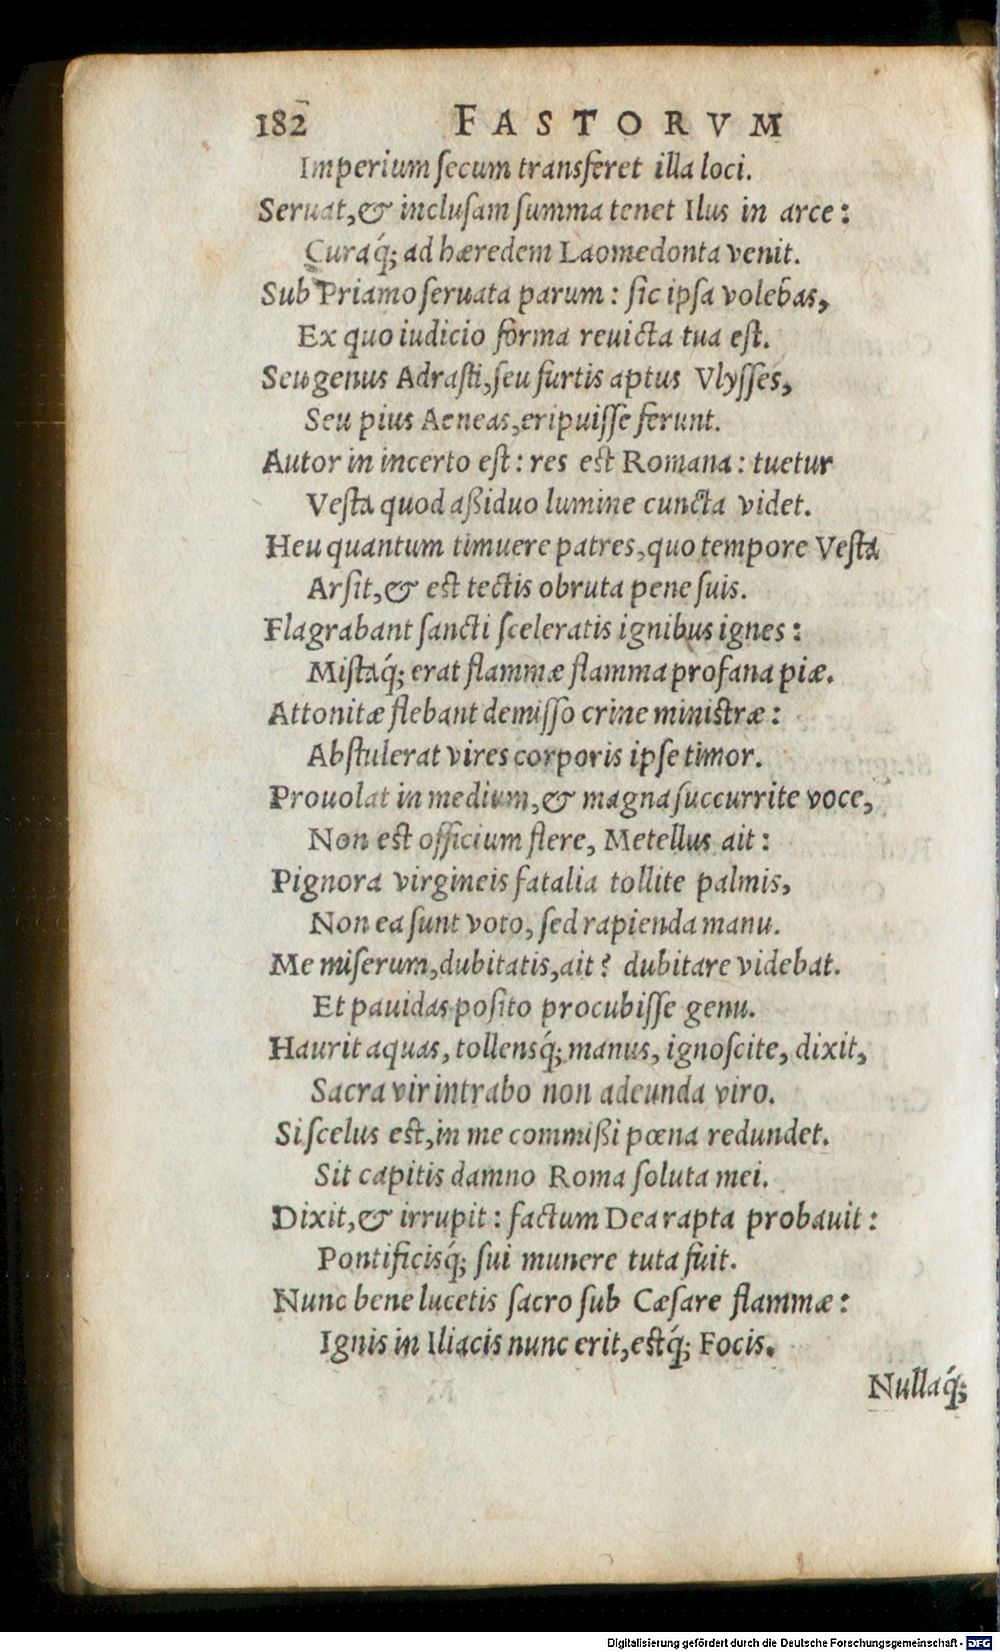 182 FASTORVM
Imperium ſecum transferet illa loci.
Seruat,& incluſam ſumma tenet Ilus in arce:
Curaq́; ad hæredem Laomedonta venit.
Sub Priamo ſeruata parum: ſic ipſa volebas,
Ex quo iudicio forma reuicta tua eſt.
Seu genus Adraſti,ſeu furtis aptus Vlyſſes,
Seu pius Aeneas,eripuiſſe ferunt.
Autor in incerto eſt: res est Romana: tuetur
Veſta quod aßiduo lumine cuncta videt.
Heu quantum timuere patres,quo tempore Veſta
Arſit,& est tectis obruta pene ſuis.
Flagrabant ſancti ſceleratis ignibus ignes:
Miſtaq́; erat flammæ flamma profana piæ.
Attonitæ flebant demiſſo crine ministræ:
Abſtulerat vires corporis ipſe timor.
Prouolat in medium,& magna ſuccurrite voce,
Non est officium flere, Metellus ait:
Pignora virgineis fatalia tollite palmis,
Non ea ſunt voto, ſed rapienda manu.
Me miſerum,dubitatis,ait? dubitare videbat.
Et pauidas poſito procubiſſe genu.
Haurit aquas, tollensq́; manus, ignoſcite, dixit,
Sacra vir intrabo non adeunda viro.
Si ſcelus est,in me commißi pœna redundet.
Sit capitis damno Roma ſoluta mei.
Dixit,& irrupit: factum Dea rapta probauit:
Pontificisq́; ſui munere tuta fuit.
Nunc bene lucetis ſacro ſub Cæſare flammæ:
Ignis in Iliacis nunc erit,estq́; Focis.
Nullaq́;
Digitalisierung gefördert durch die Deutsche Forschungsgemeinschaft - DFG